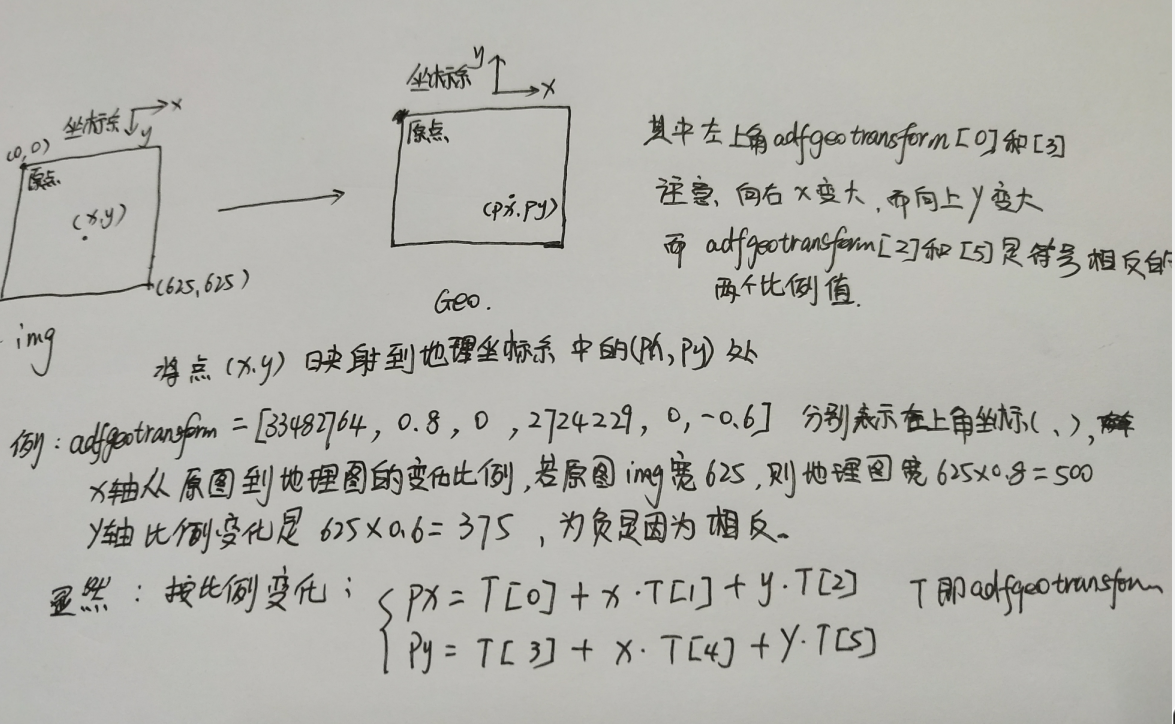 坐标系 x
y
(0,0)
原点
(x,y)
(625,625)
img
坐标系 y
x
原点
(px,py)
Geo.
其中左上角adfgeotransform[0]和[3]
注意,向右x变大,而向上y变大
而adfgeotransform[2]和[5]是符号相反的
两个比例值.
将点(x,y)映射到地理坐标系中的(px,py)处
例:adfgeotransform=[33482764, 0.8, 0, 2724229, 0, -0.6] 分别表示左上角坐标(、),
x轴从原图到地理图的变化比例,若原图img宽625,则地理图宽625×0.8=500
y轴比例变化是625×0.6=375,为负是因为相反。
显然:按比例变化: px=T[0]+x·T[1]+y·T[2] T即adfgeotransform
py=T[3]+x·T[4]+y·T[5]